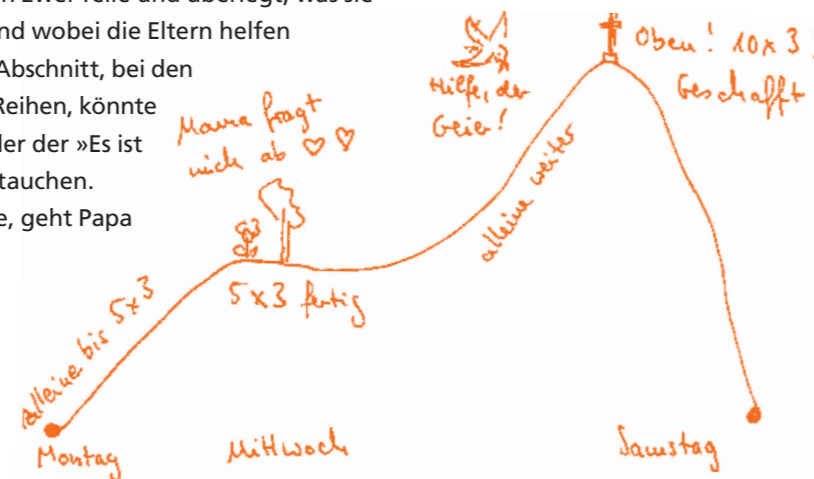 n zwei Teile und überlegt, was sie
nd wobei die Eltern helfen
Abschnitt, bei den
Reihen, könnte
der der »Es ist
tauchen.
e, geht Papa
Mama fragt
mich ab ♡ ♡
Hilfe, der
Geier!
Oben! 10x3
Geschafft
alleine bis 5x3
5x3 fertig
alleine weiter
Montag
Mittwoch
Samstag